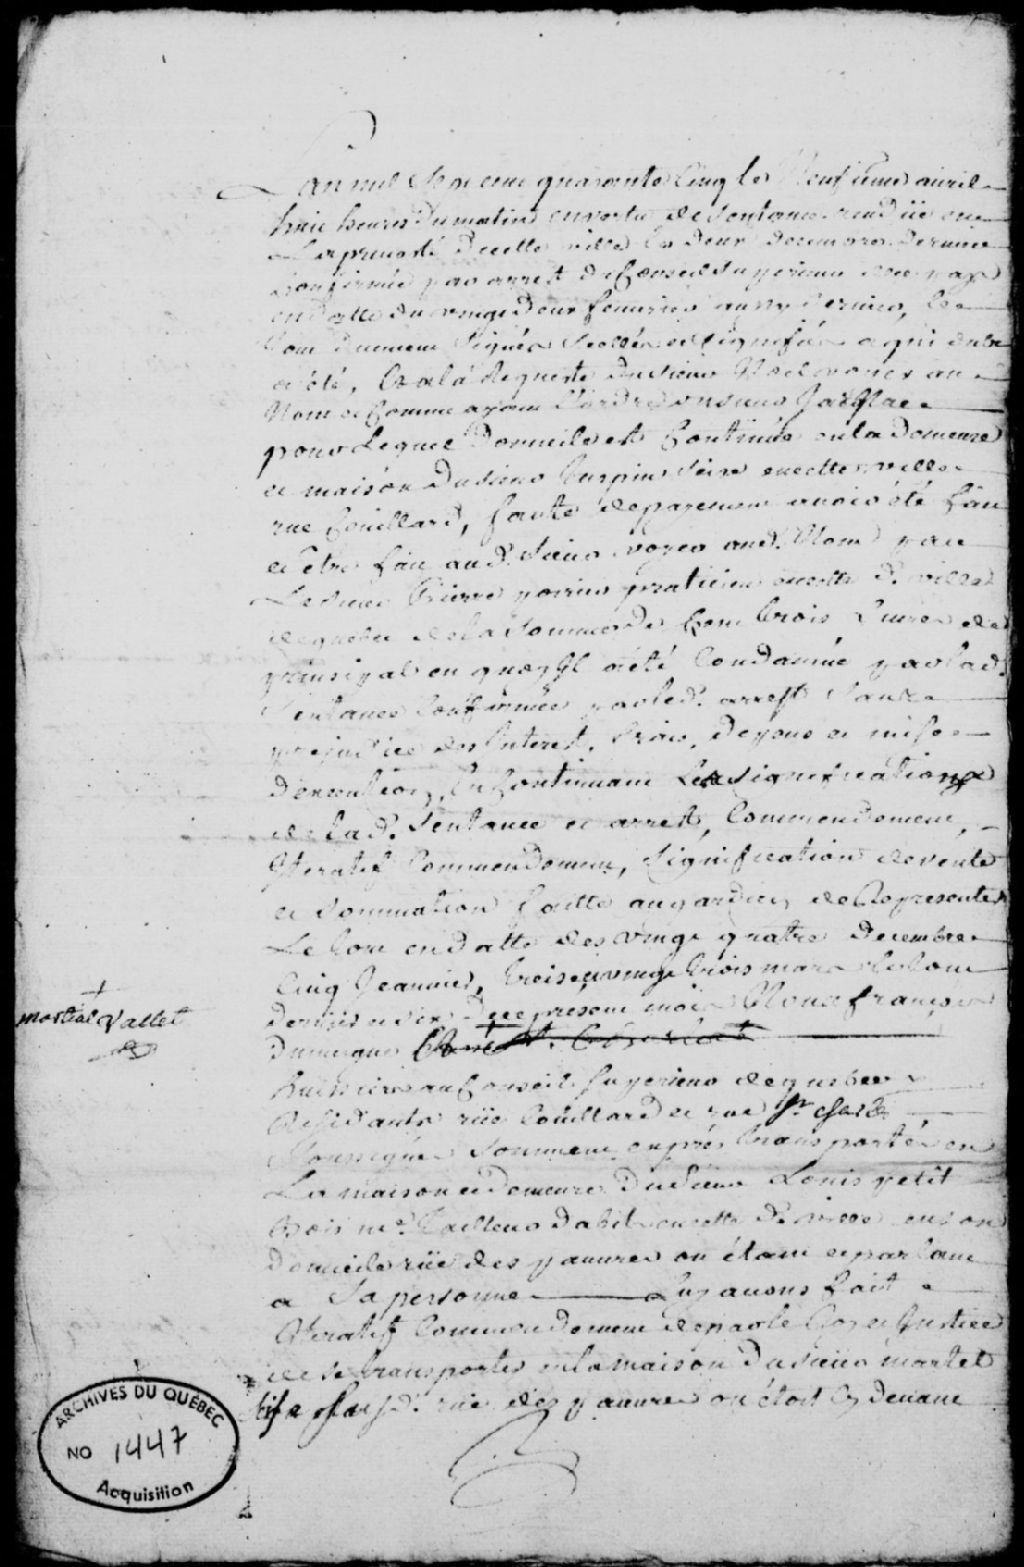 L'an mil Sept cens quarante Cinq le Neufiéme avril
huit heures du matin en vertu de Sentance rendüe en
La prevosté de cette ville le deux decembre dernier
Confirmée par arrest du Conseil Superieur de ce pays
en datte du vingt deux fevrier aussy dernier, le
tout duement Signés Scellés et Signifiés a qui
a été, Et a la Requeste du Sieur Voyer au
Nom et Comme ayant l'ordre du Sieur
pour Lequel domicile est Continué en la demeure
et maison du Sieur Turpin Size en cette ville
rue Couillard, faute de payement avoir été fait
et Etre fait aud. Sieur voyer aud. Nom par
Le Sieur Pierre poirier praticien en cette d. ville
de quebec de la Somme de Cent trois Livres de
principal en quoy Il a été Condamné par lad.
Sentance Confirmée par led. arrest Sans
prejudice des Interest, frais, depens et mise
d'execution, En Continuant Les Significations
de lad. Sentance et arrest, Commendement,
Iteratif Commendement, Signification de vente
et Sommation faitte au gardien de Representer
Le tout en datte des vingt quatre decembre
Cinq Janvier, treize vingt trois mars le tout
dernier et Six du present mois Nous françois
dumergue
+
martial Vallet
huissiers au Conseil Superieur de quebec
Residants rüe Couillard et rue St.
Soussignés Sommes exprés transportés en
La maison et demeure du Sieur Louis petit
bois me. Tailleur d'abit en cette d. ville en son
domicile rüe des pauvres ou étant et parlant
a Sa personne Luy avons fait
Iteratif Commendement de par le Roy et Justice
de se transporter en la maison du Sieur martel
Sise Susd. rüe des pauvres ou étoit Cy devant
ARCHIVES DU QUÉBEC
NO 1447
Acquisition